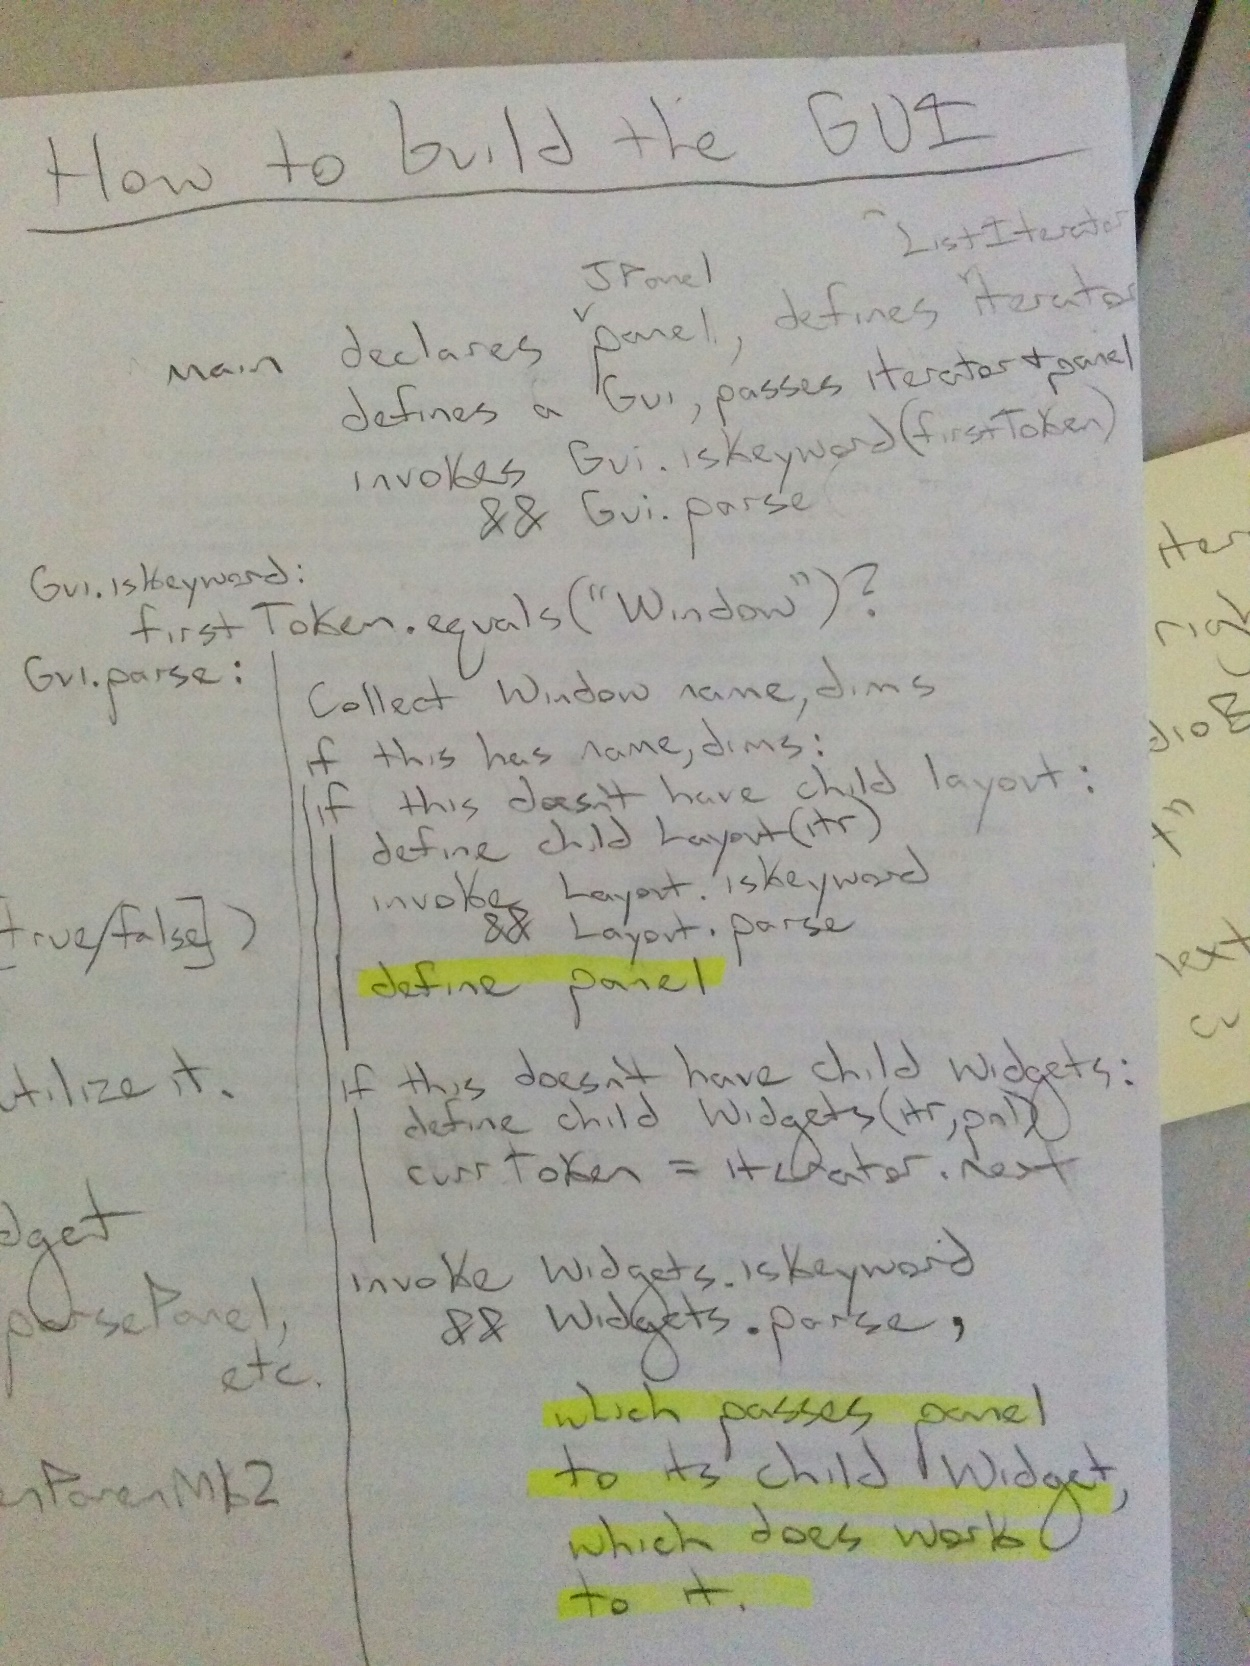 How to build the GUI
ListIterator
JPanel
main declares panel, defines iterator
defines a Gui, passes iterator + panel
invokes Gui.isKeyword(firstToken)
&& Gui.parse
Gui.isKeyword:
firstToken.equals("Window")?
Gui.parse:
Collect Window name, dims
if this has name, dims:
if this doesn't have child layout:
define child Layout(itr)
invoke Layout.isKeyword
&& Layout.parse
define panel
if this doesn't have child widgets:
define child Widgets(itr, pnl)
currToken = iterator.next
invoke Widgets.isKeyword
&& Widgets.parse,
which passes panel
to its child Widget,
which does work
to it.
[true/false])
utilize it.
dget
parsePanel,
etc.
enParenMk2
iter
righ
dioB
ext
cu